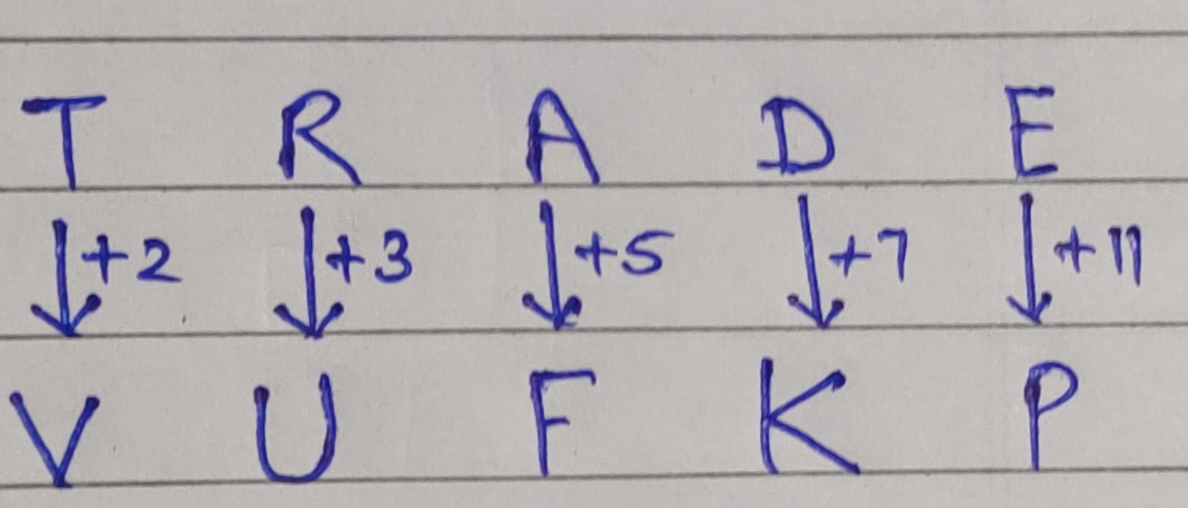 T R A D E
↓+2 ↓+3 ↓+5 ↓+7 ↓+11
V U F K P